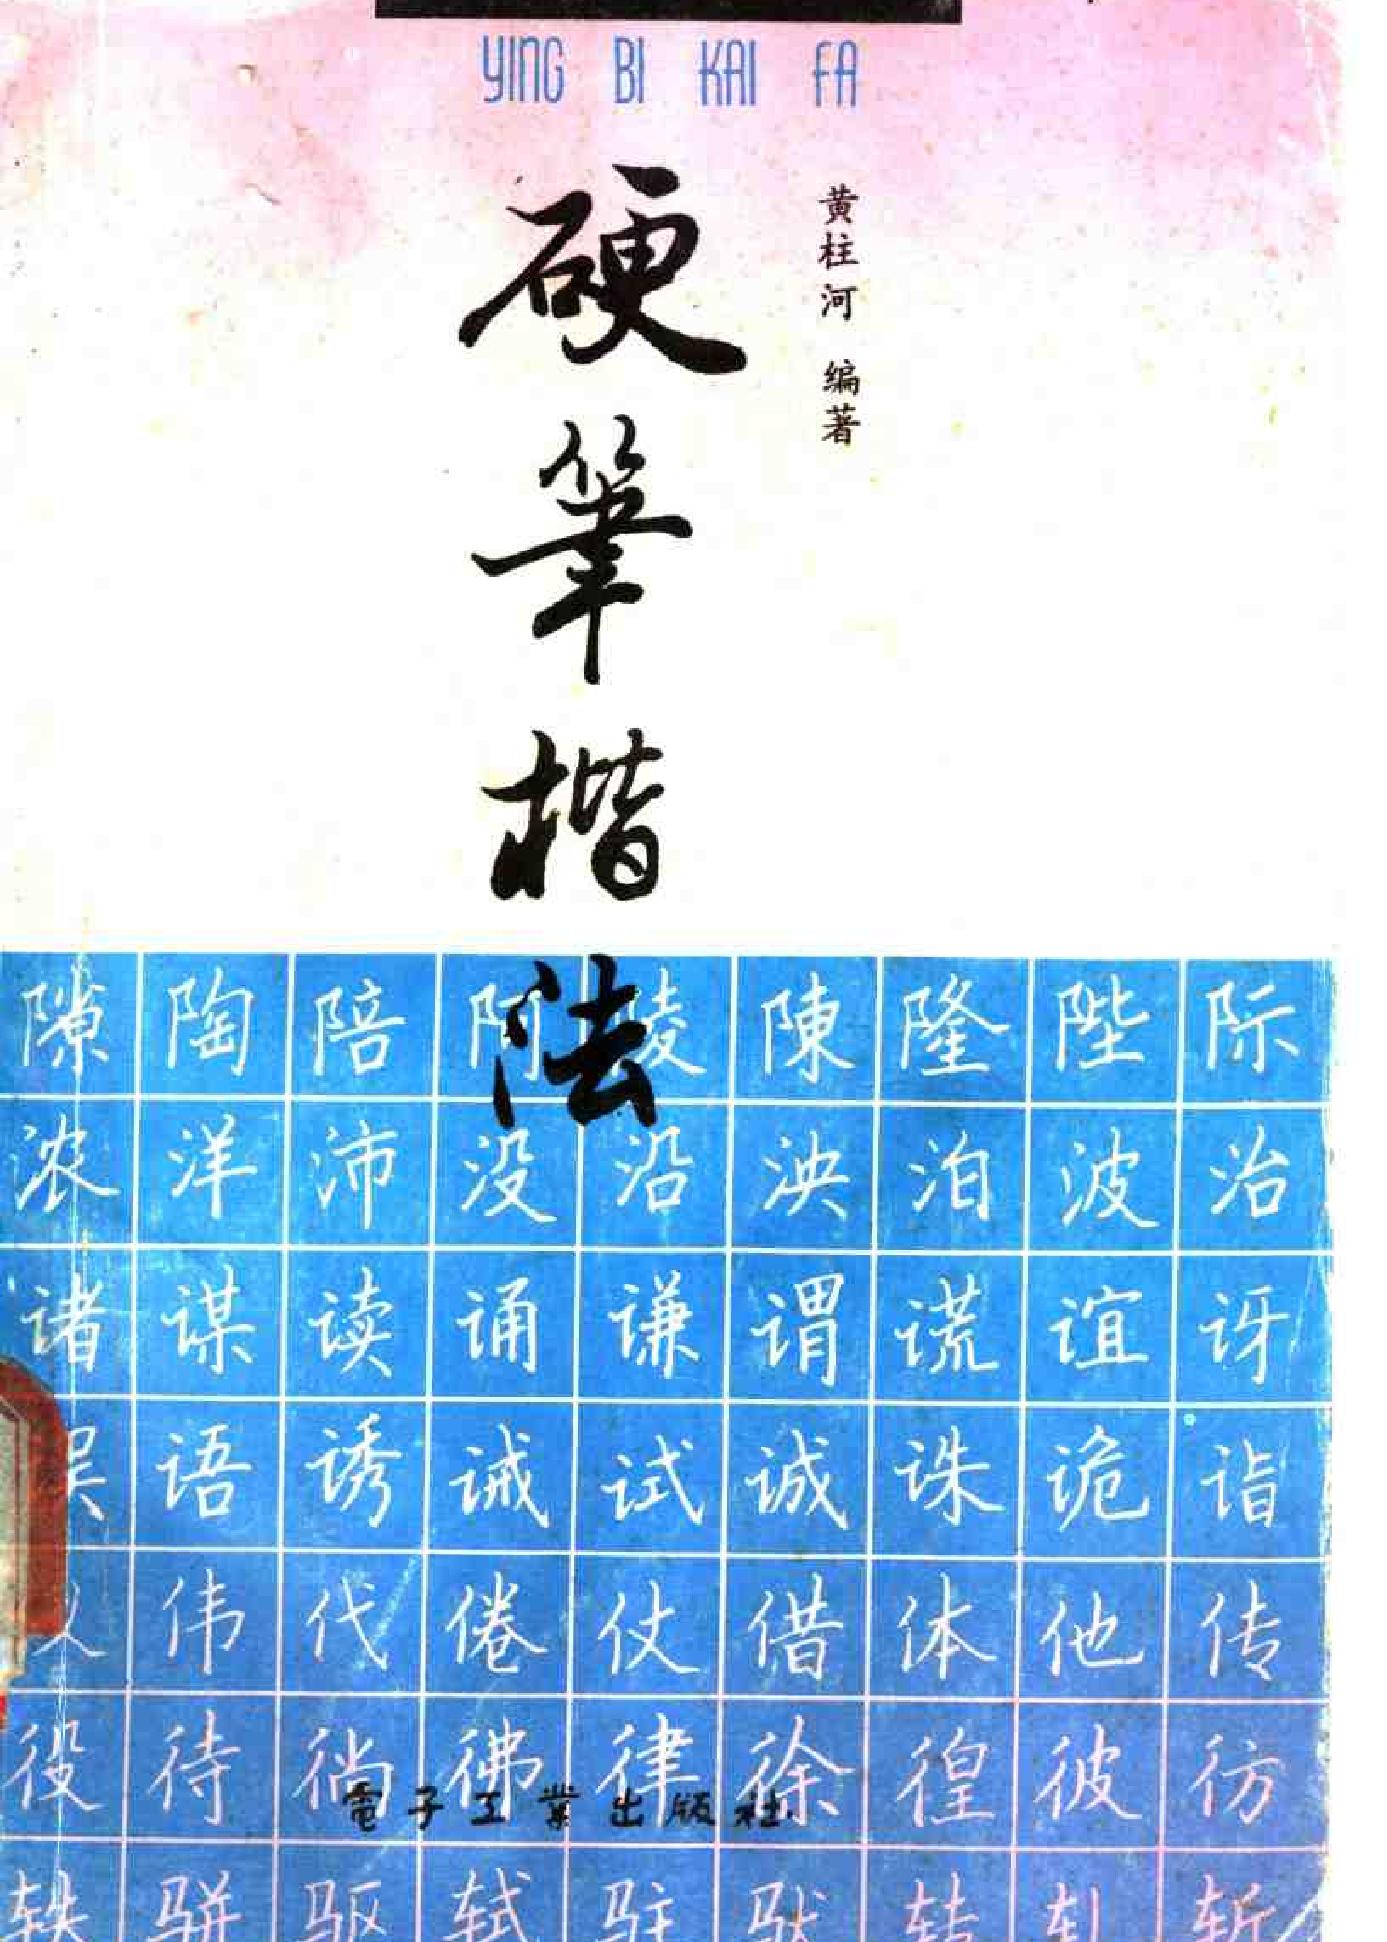 YING BI KAI FA
硬筆楷法
黄柱河 编著
隙 陶 陪 阿 陵 陳 隆 陛 际
浓 洋 沛 没 沿 泱 泊 波 治
诸 谋 读 诵 谦 谓 谎 谊 讶
误 语 诱 诫 试 诚 诛 诡 诣
伟 代 倦 仗 借 体 他 传
役 待 徜 彿 律 徐 徨 彼 彷
電子工業出版社
轶 骈 驱 轼 驻 驮 转 轧 斩